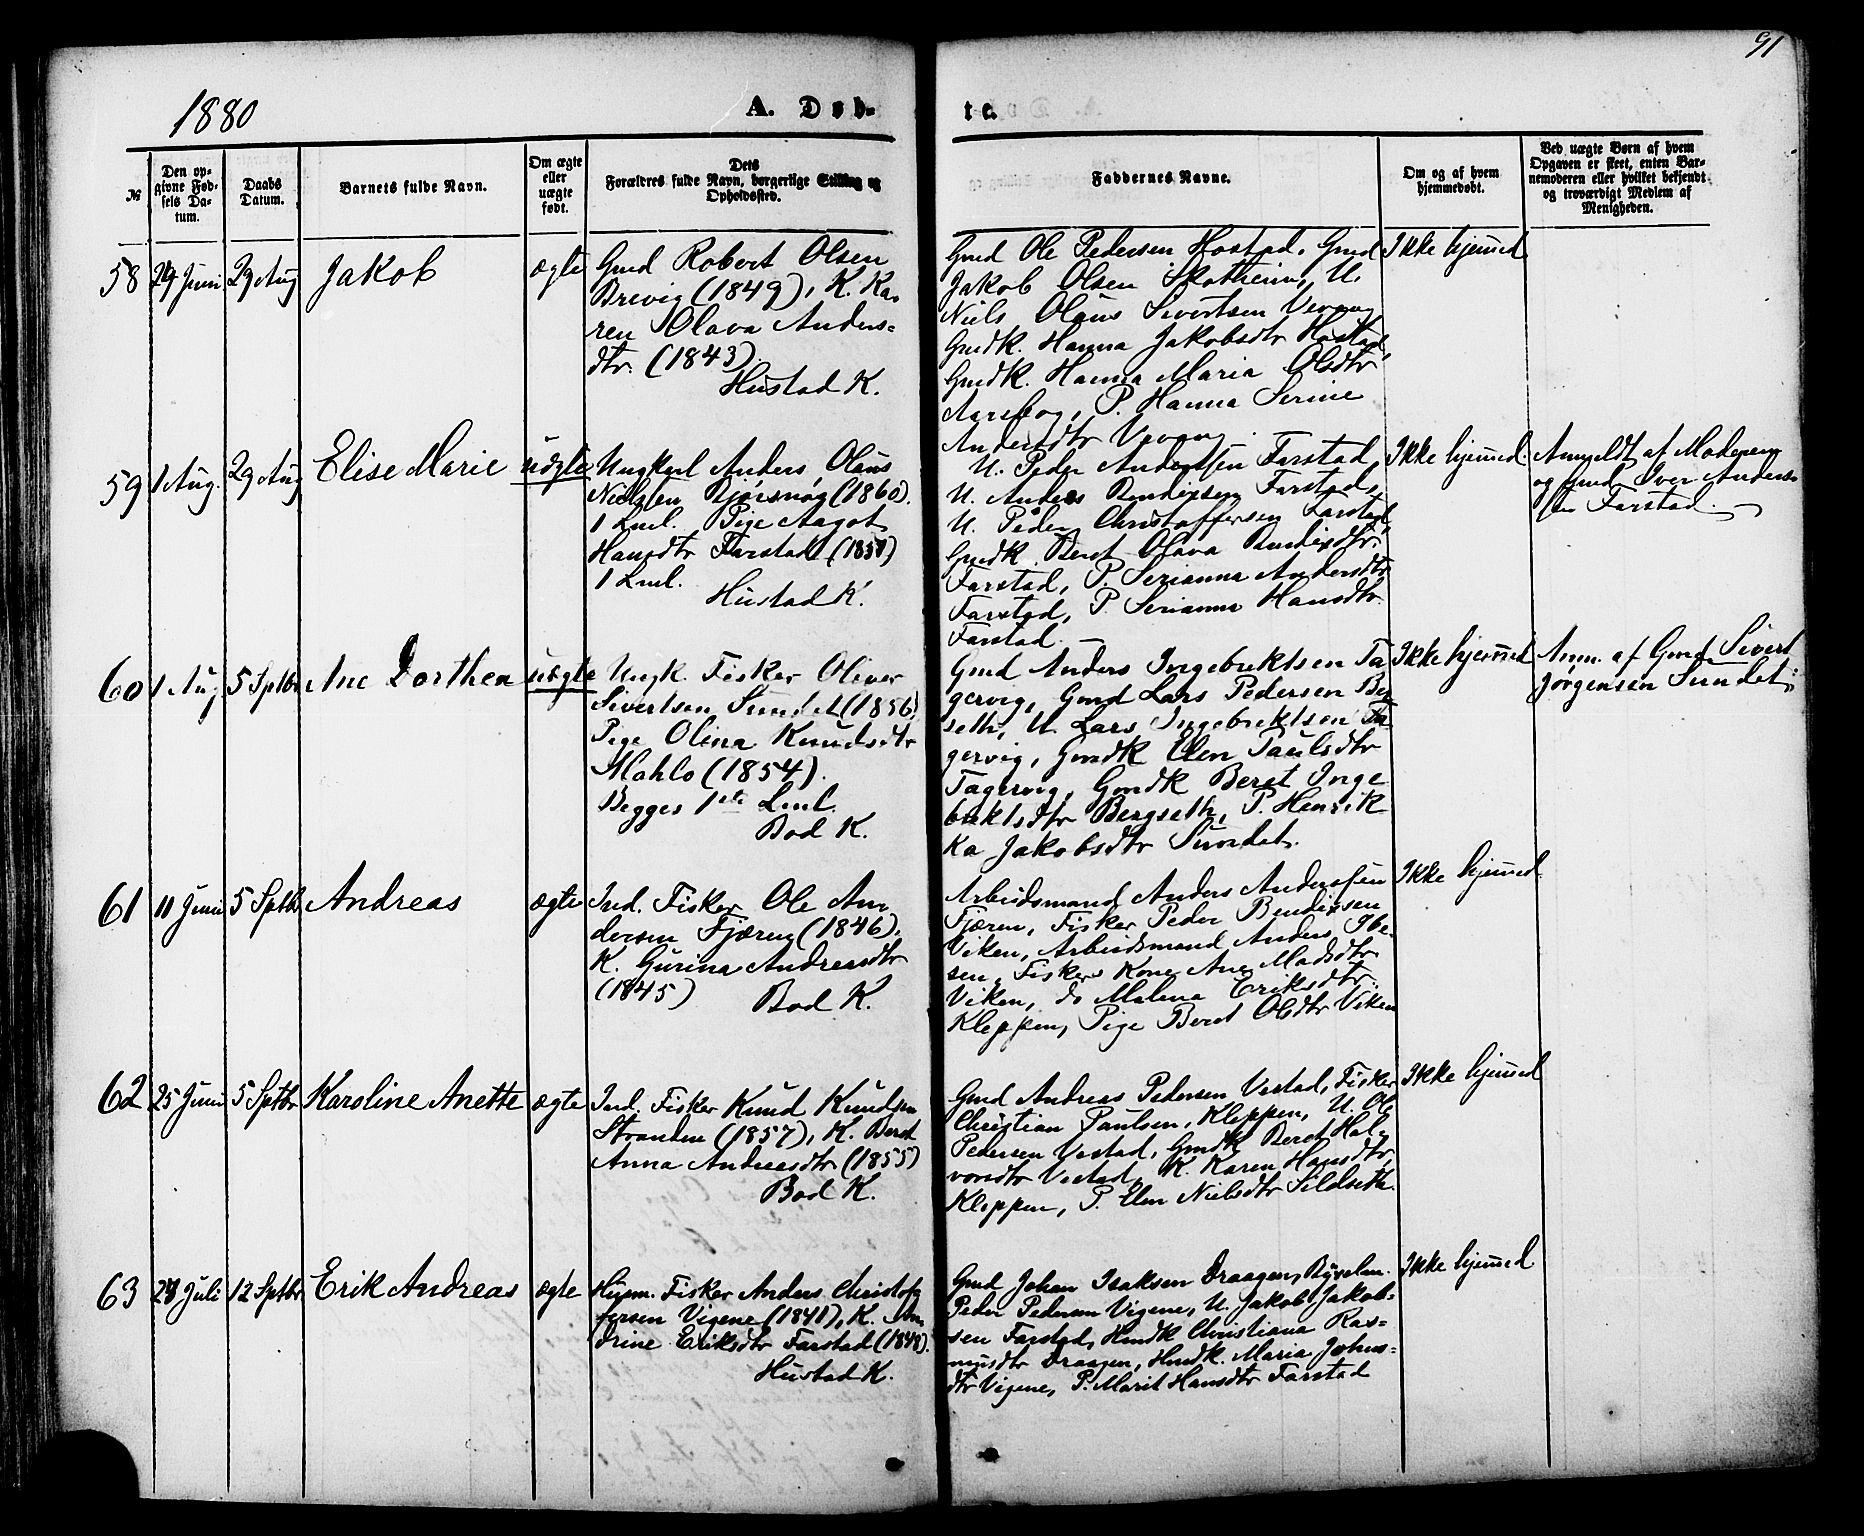 91
1880
A. Døb-
te.
№
Den op-
givne Fød-
sels Da-
tum.
Daabs
Datum.
Barnets fulde Navn.
Om ægte
eller
uægte
født.
Dets
Forældres fulde Navn, borgerlige Stilling og
Opholdssted.
Faddernes Navne.
Om og af hvem
hjemmedøbt.
Ved uægte Børn af hvem
Opgaven er skeet, enten Bar-
nemoderen eller hvilket bekjendt
og troværdigt Medlem af
Menigheden.
58 29 Juni 29 Aug Jakob ægte
Gmd Robert Olsen
Brevig (1849), K. Ka-
ren Olava Anders-
dtr. (1843).
Hustad K.
Gmd Ole Pedersen Hostad, Gmd
Jakob Olsen Skotheim, U.
Niels Olaus Sivertsen Vevang
Gmdk. Hanna Jakobsdtr Hostad,
Gmdk. Hanna Maria Olsdtr
Aarsbog, P. Hanna Serine
Andersdtr Vevang.
Ikke hjemmed
59 1 Aug. 29 Aug Elise Marie uægte
Ungkarl Anders Olaus
Nielsen Bjørsnøs (1860).
1 Lml. Pige Aagot
Hansdtr Farstad (1857)
1 Lml.
Hustad K.
U. Peder Andersen Farstad,
U. Anders Bendixsen Farstad,
U. Peder Christoffersen Farstad,
Gmdk. Beret Olava Bendixdtr.
Farstad, P. Serianna Andersdtr
Farstad, P. Serianna Hansdtr.
Farstad.
Ikke hjemmed.
Anmeldt af Moderen
og Gmd Iver Anders-
sen Farstad.
60 1 Aug 5 Sptbr Ane Dorthea uægte
Ungk. Fisker Oliver
Sivertsen Sundet (1856)
Pige Olina Knudsdtr
Mahlo (1854).
Begges 1ste Lml.
Bod K.
Gmd Anders Ingebrektsen Ta
gervig, Gmd Lars Pedersen Berg
seth, U. Lars Ingebrektsen Ta-
gervig, Gmdk Elen Paulsdtr
Tagervig, Gmdk Beret Inge
brektsdtr Bergseth, P. Henrik
ka Jakobsdtr Sundet.
Ikke hjemmed
Anm. af Gmd Sivert
Jørgensen Sundet.
61 11 Juni 5 Sptbr Andreas ægte
Ind. Fisker Ole An
dersen Fjæren (1846).
K. Gurina Andreasdtr
(1845)
Bod K.
Arbeidsmand Anders Anderssen
Fjæren, Fisker Peder Bendixsen
Viken, Arbeidsmand Anders Ibe-
sen, Fiskers Kone Ane Madsdtr
Viken, do Malena Eriksdtr.
Kleppen, Pige Beret Olsdtr Viken
Ikke hjemmed.
62 25 Juni 5 Sptbr Karoline Anette ægte
Ind. Fisker Knud Knudsen
Stranden (1857), K. Beret
Anna Andreasdtr (1855)
Bod K.
Gmd Andreas Pedersen Vestad, Fisker
Christian Paulsen, Kleppen, U. Ole
Pedersen Vestad, Gmdk Beret Hal-
vorsdtr Vestad, K. Karen Hansdtr,
Kleppen, P. Elen Nielsdtr Sildseth.
Ikke hjemmed
63 28 Juli 12 Sptbr Erik Andreas ægte
Husm. Fisker Anders Christof-
fersen Vigene (1841), K. An
drine Eriksdtr Farstad (1848).
Hustad K.
Gmd Johan Isaksen Draagen,
Peder Pedersen Vigene, U. Jakob Jakob-
sen Farstad, Hmdk Christiana Ras-
musdtr Draagen, Hmdk. Maria Johns-
dtr Vigene, P. Marit Hansdtr Farstad
Ikke hjemmed